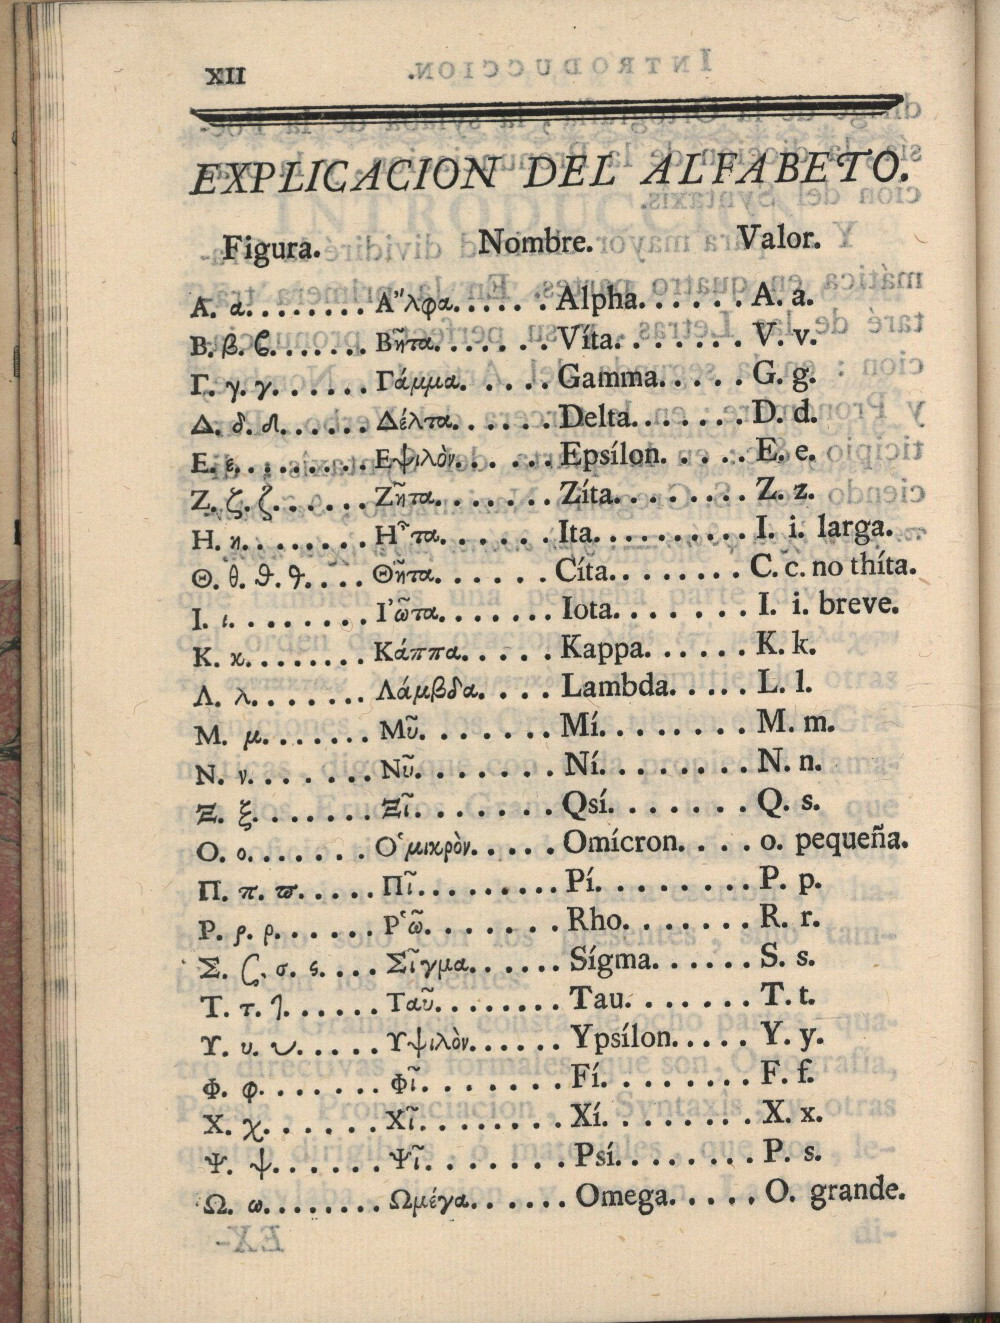 XII
EXPLICACION DEL ALFABETO.
Figura. Nombre. Valor.
Α. α......... Α῎λφα....... Alpha....... A. a.
Β. β. ϐ....... Βῆτα........ Víta........ V. v.
Γ. γ. γ....... Γάμμα...... Gamma..... G. g.
Δ. δ. δ....... Δέλτα....... Delta....... D. d.
Ε. ε......... Εψιλὸν...... Epsílon..... E. e.
Ζ. ζ. ζ....... Ζῆτα........ Zíta........ Z. z.
Η. η......... Η῏τα....... Ita.......... I. i. larga.
Θ. θ. ϑ. ϑ.... Θῆτα....... Cíta........ C. c. no thíta.
Ι. ι......... Ι᾿ῶτα........ Iota........ I. i. breve.
Κ. κ........ Κάππα..... Kappa...... K. k.
Λ. λ........ Λάμβδα.... Lambda..... L. l.
Μ. μ........ Μῦ........ Mí........ M. m.
Ν. ν........ Νῦ........ Ní........ N. n.
Ξ. ξ........ Ξῖ........ Qsí........ Q. s.
Ο. ο........ Ο῾μικρὸν..... Omícron.... o. pequeña.
Π. π. ϖ..... Πῖ......... Pí........ P. p.
Ρ. ρ. ρ...... Ρ῾ῶ........ Rho........ R. r.
Σ. ϛ. σ. ς.... Σῖγμα...... Sígma...... S. s.
Τ. τ. ⁊...... Ταῦ........ Tau........ T. t.
Υ. υ. υ..... Υψιλὸν...... Ypsílon..... Y. y.
Φ. φ........ Φῖ......... Fí......... F. f.
Χ. χ........ Χῖ......... Xí......... X. x.
Ψ. ψ....... Ψῖ......... Psí........ P. s.
Ω. ω........ Ωμέγα...... Omega..... O. grande.